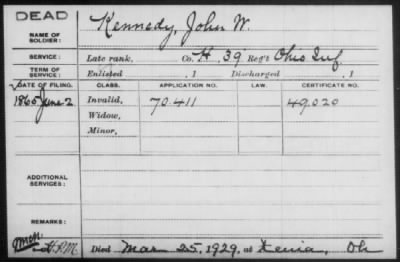 DEAD
NAME OF SOLDIER: Kennedy, John W.
SERVICE: Late rank, Co. H. 39 Reg't Ohio Inf.
TERM OF SERVICE: Enlisted , 1 Discharged , 1
DATE OF FILING. CLASS. APPLICATION NO. LAW. CERTIFICATE NO.
1865 June 2 Invalid, 70.411 49.020
Widow,
Minor,
ADDITIONAL SERVICES:
REMARKS:
Died Mar 25, 1929, at Xenia, Oh